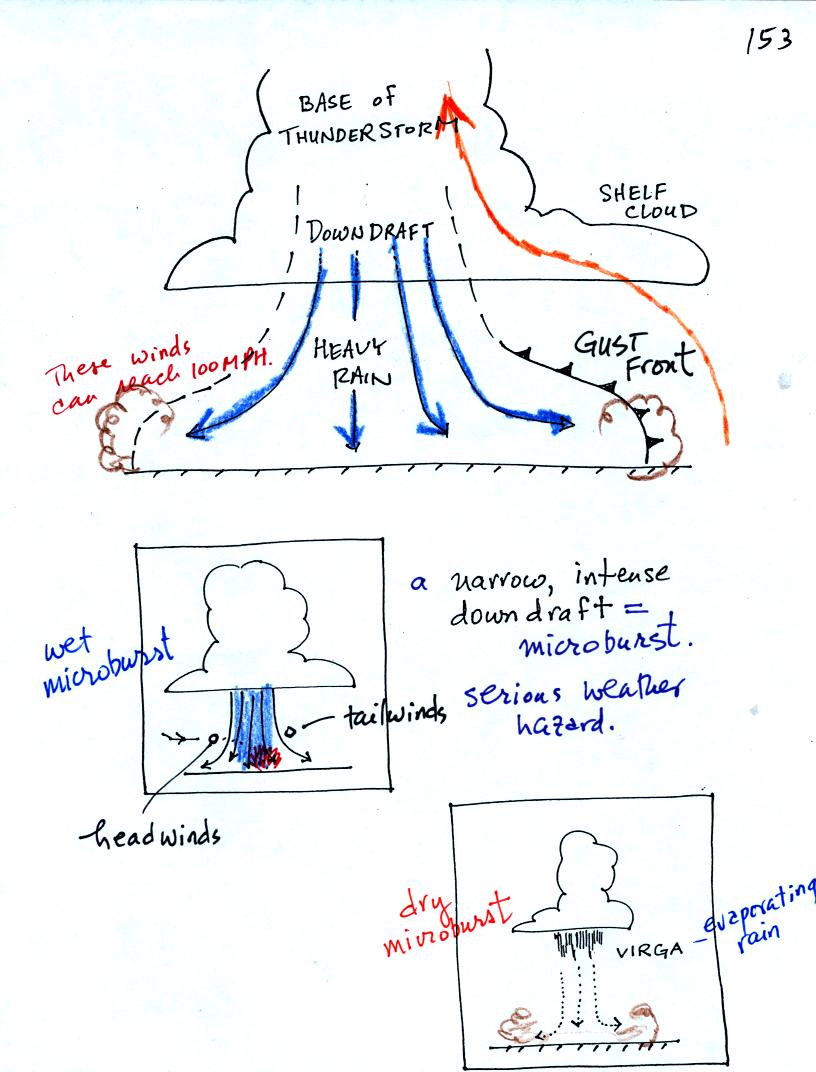 153
BASE of
THUNDERSTORM
SHELF
CLOUD
DOWNDRAFT
These winds
can reach 100MPH.
HEAVY
RAIN
GUST
Front
a narrow, intense
downdraft =
microburst.
wet
microburst
serious weather
hazard.
tailwinds
headwinds
dry
microburst
VIRGA
evaporating
rain